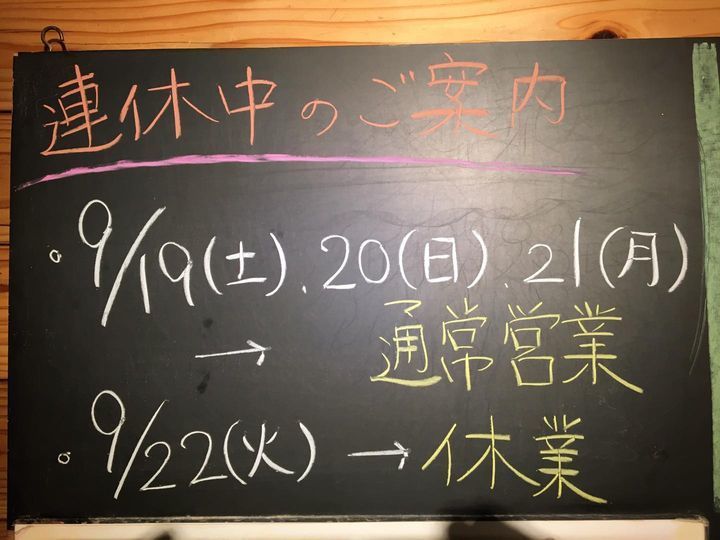 連休中のご案内
。9/19(土).20(日).21(月)
→ 通常営業
。9/22(火)→休業